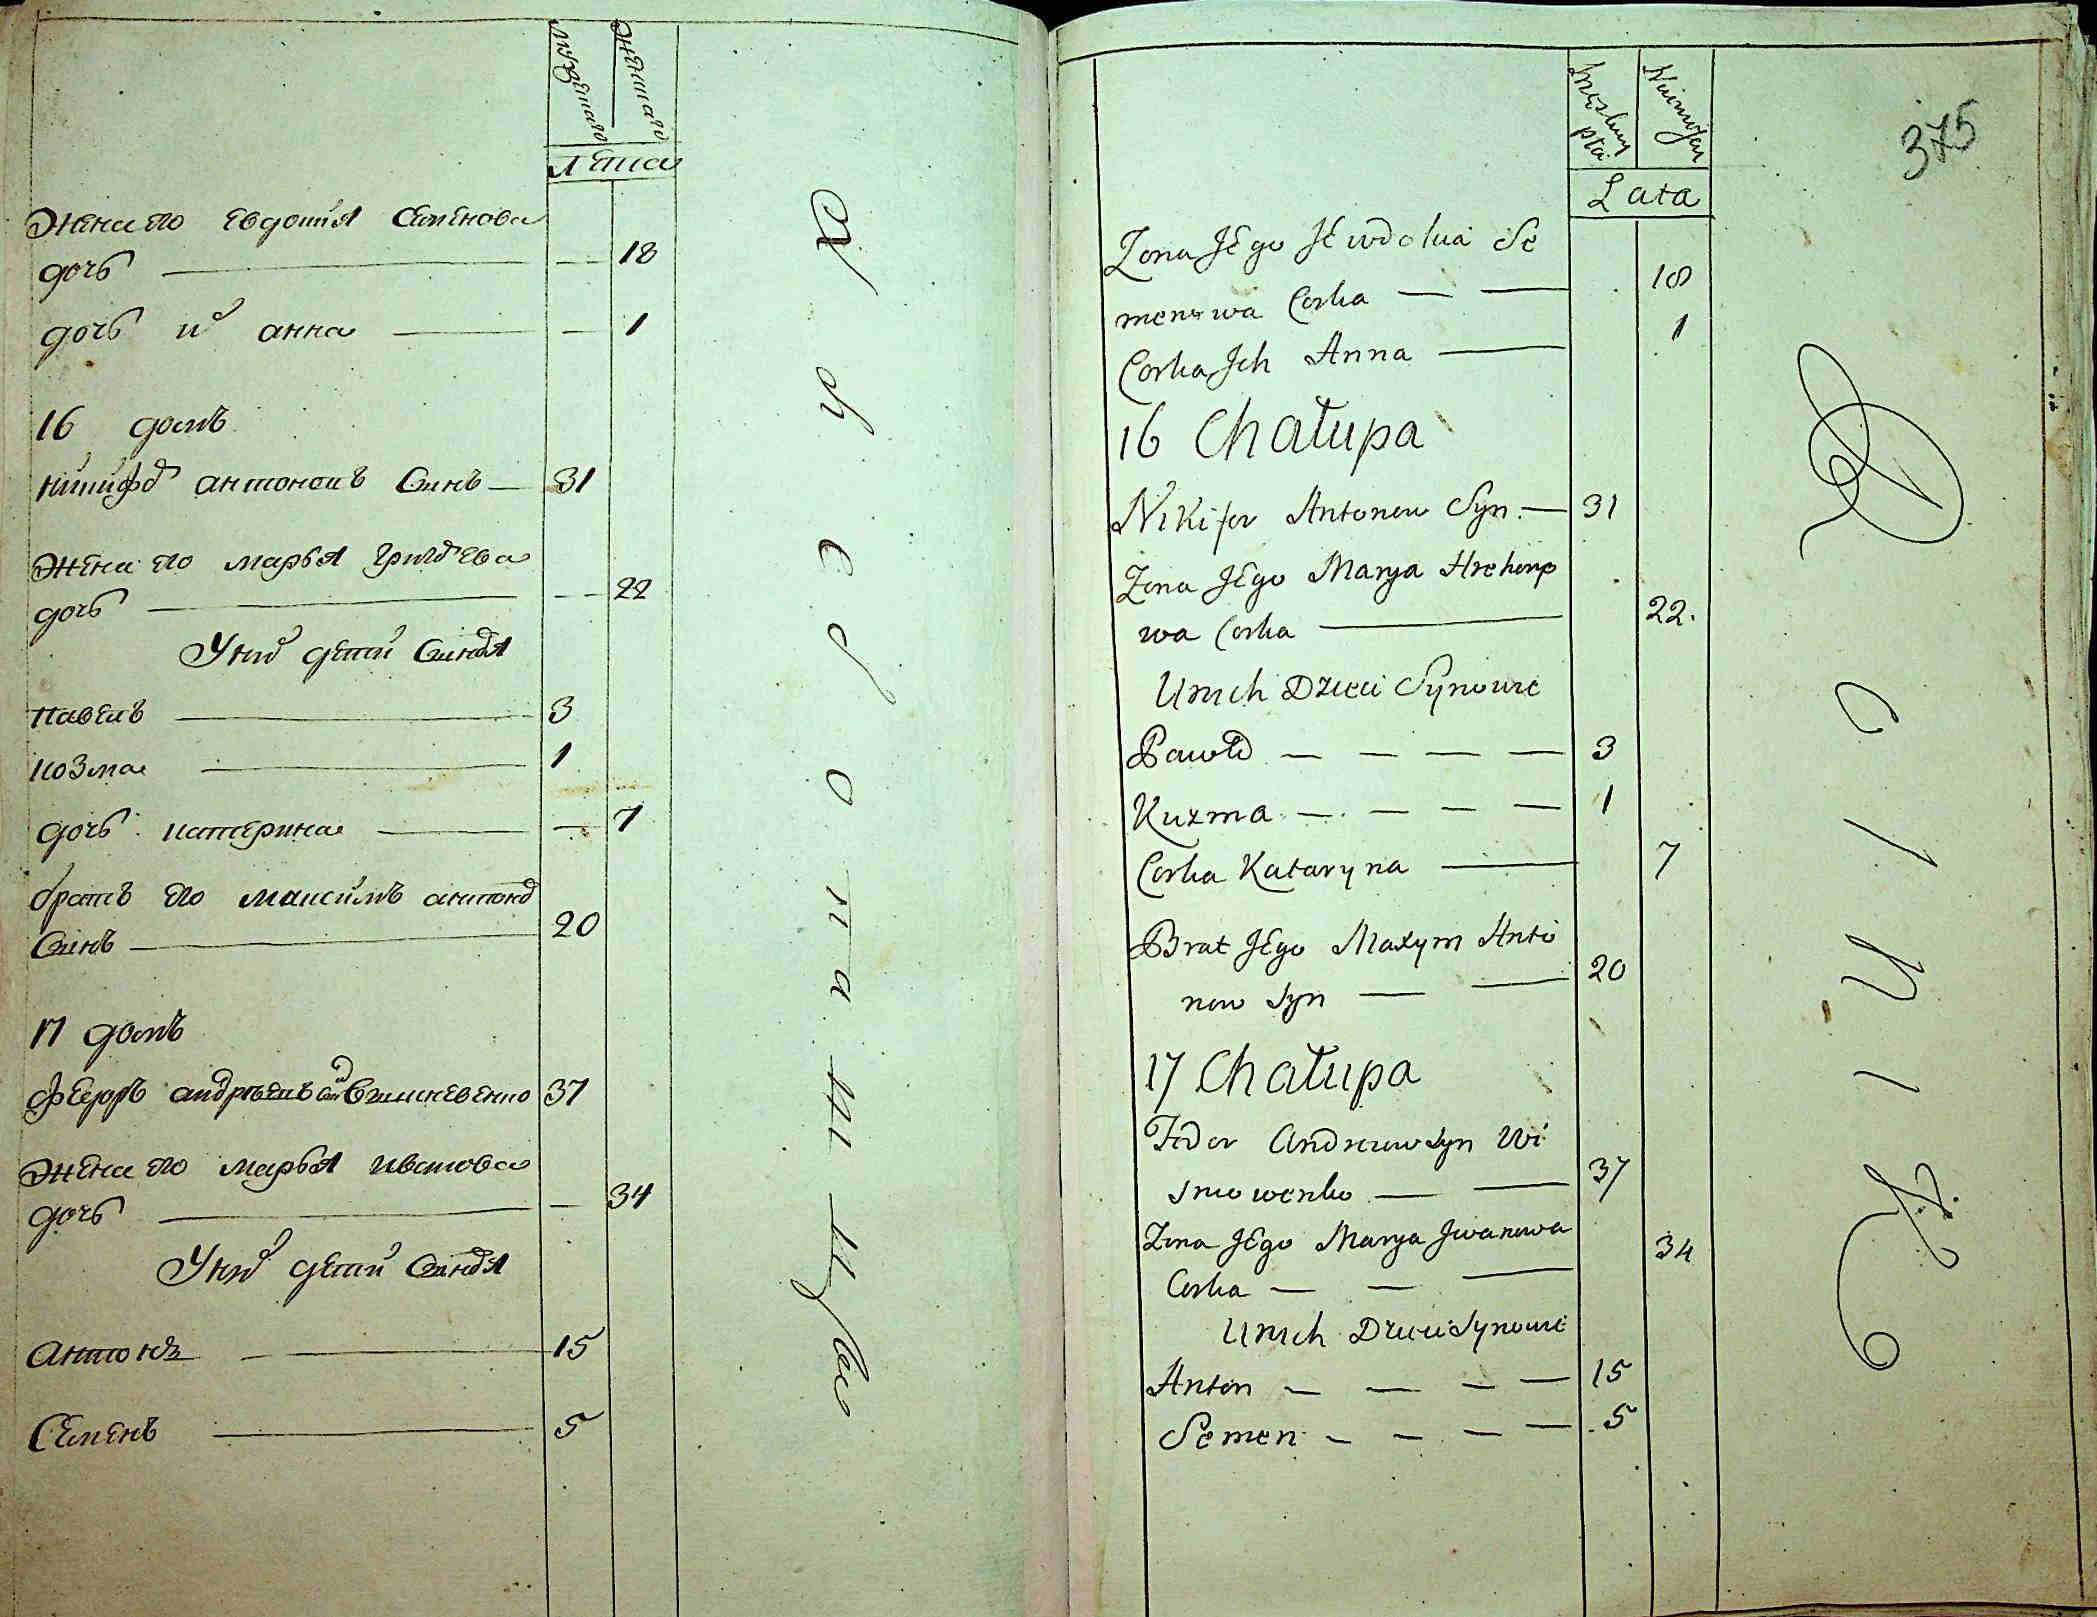 мужеска женска
лета
жена его евдокия семенова
дочь — 18
дочь их анна — 1
16 домъ
никифор антоновъ синъ — 31
жена его марья григорева
дочь — 22
У них дети синовя
павелъ — 3
козма — 1
дочь катерина — 7
братъ его максимъ антонов
синъ — 20
17 домъ
федоръ андреевъ син 37
жена его марья иванова
дочь — 34
У них дети синовя
Антонъ — 15
Семенъ — 5
375
Męzkiey płci
Lata
Zona Jego Jewdokia Se
menowa Corka — — 18
Corka Jch Anna — 1
16 Chałupa
Nikifor Antonow Syn. — 31
Zona Jego Marya Hrehoro
wa Corka — 22.
Unich Dzieci Synowie
Paweł — — — — 3
Kuzma — — — — 1
Corka Kataryna — 7
Brat Jego Maxym Anto
now Syn — — 20
17 Chałupa
Fedor Andreiew Syn Wi
sniowenko — — 37
Zona Jego Marya Jwanowa
Corka — — — 34
Unich Dzieci Synowie
Anton — — — — 15
Semen — — — — 5